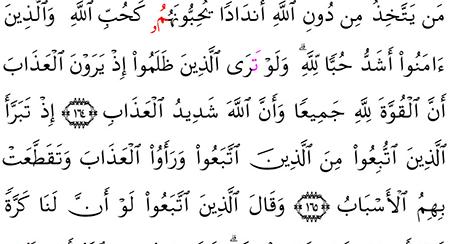 مَن يَتَّخِذُ مِن دُونِ اللَّهِ أَندَادًا يُحِبُّونَهُمُۥ كَحُبِّ اللَّهِ وَالَّذِينَ
ءَامَنُوٓاْ أَشَدُّ حُبًّا لِّلَّهِۗ وَلَوْ تَرَى الَّذِينَ ظَلَمُوٓاْ إِذْ يَرَوْنَ الْعَذَابَ
أَنَّ الْقُوَّةَ لِلَّهِ جَمِيعًا وَأَنَّ اللَّهَ شَدِيدُ الْعَذَابِ ١٦٤ إِذْ تَبَرَّأَ
الَّذِينَ اتُّبِعُواْ مِنَ الَّذِينَ اتَّبَعُواْ وَرَأَوُاْ الْعَذَابَ وَتَقَطَّعَتْ
بِهِمُ الْأَسْبَابُ ١٦٥ وَقَالَ الَّذِينَ اتَّبَعُواْ لَوْ أَنَّ لَنَا كَرَّةً